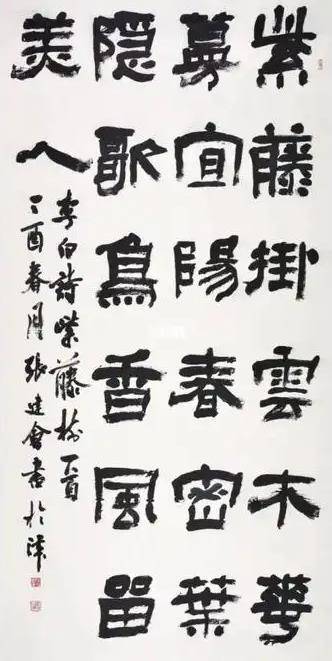 紫藤掛雲木華
蔓宜陽春密葉
隐歌鳥香風留
美人
李白詩紫藤樹一首
丁酉春月張建會書於津